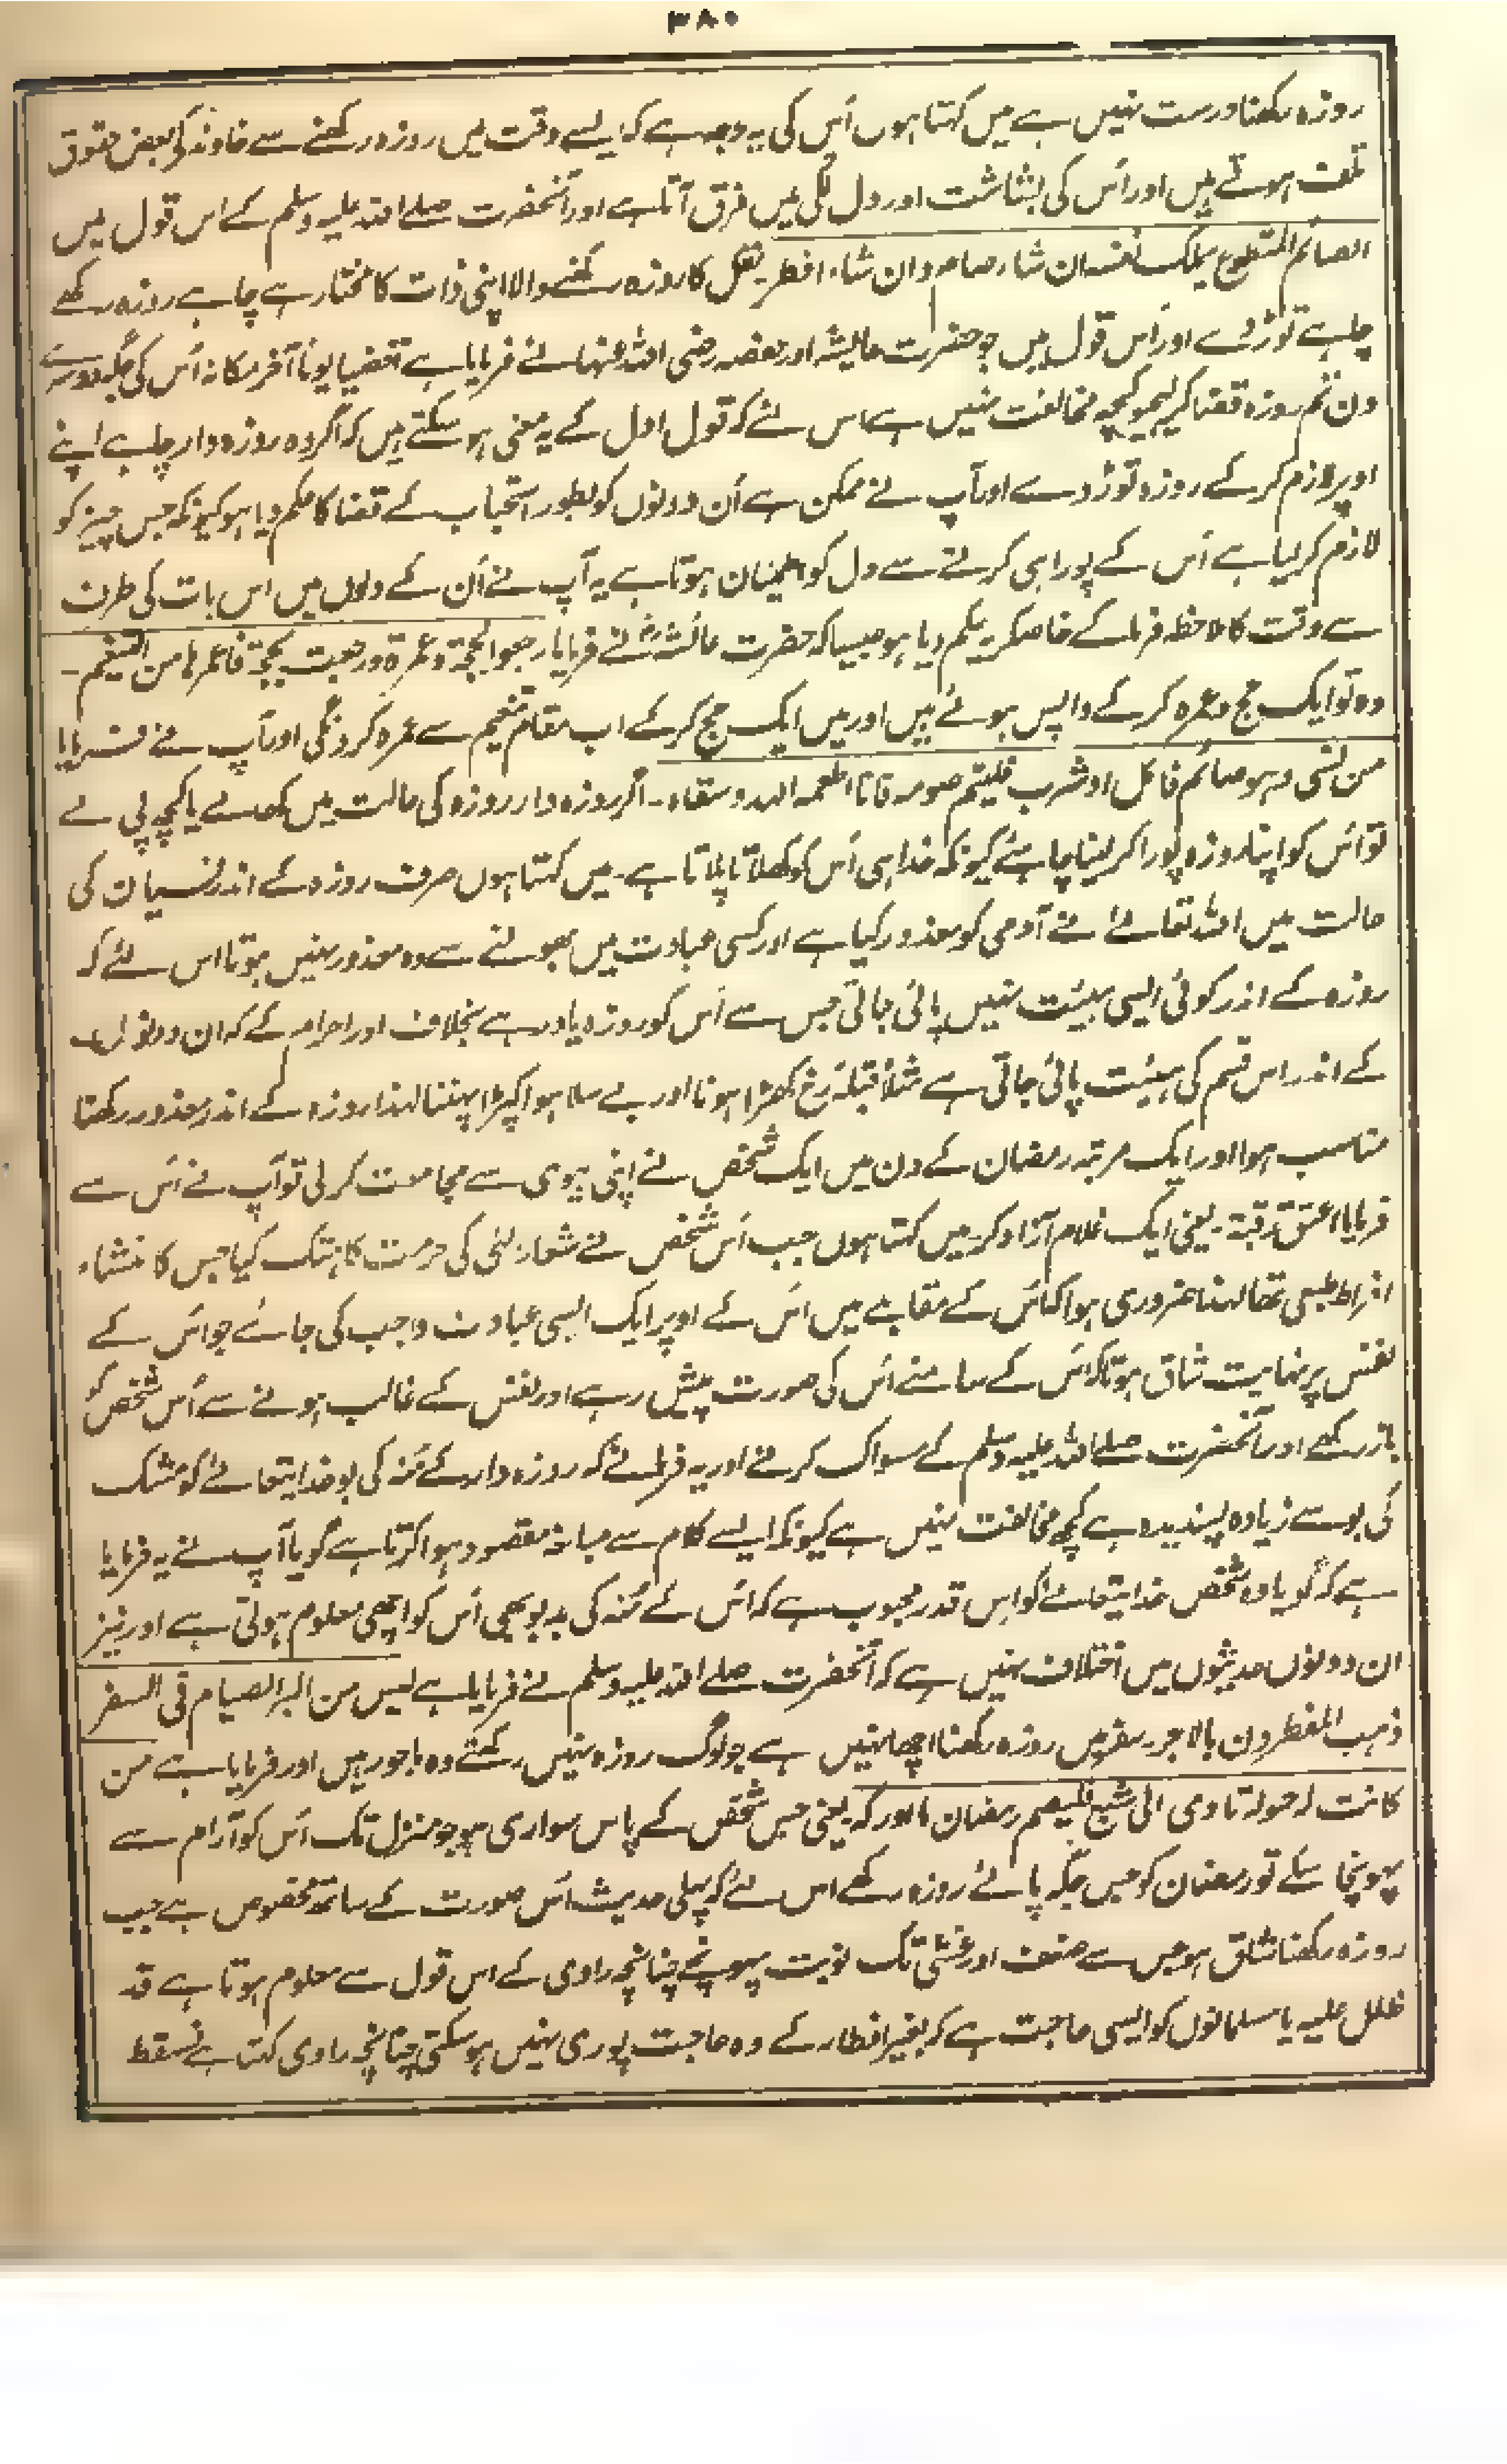 ۳۸۰
روزہ رکھنا درست نہیں ہے میں کہتا ہوں اُس کی یہ وجہ ہے کہ ایسے وقت میں روزہ رکھنے سے خاوند کے بعض حقوق
تلف ہوتے ہیں اور اُس کی بشاشت اور دل لگی میں فرق آتا ہے اور آنحضرت صلے اللہ علیہ وسلم کے اس قول میں
الصائم المتطوع یملک نفسہ ان شاء صام وان شاء افطر۔ نفل کا روزہ رکھنے والا اپنی ذات کا مختار ہے چاہے روزہ رکھے
چاہے توڑ دے اور اُس قول میں جو حضرت عایشہ اور حفصہ رضی اللہ عنہا سے فرمایا ہے اقضیا یوماً آخر مکانہ اُس کی جگہ دوسرے
دن تم روزہ قضا کر لیجیو کچھ مخالفت نہیں ہے اس لئے کہ قول اول کے یہ معنی ہو سکتے ہیں کہ اگر وہ روزہ دار چاہے اپنے
اوپر لازم کر کے روزہ توڑ دے اور آپ نے ممکن ہے اُن دونوں کو بطور استحباب کے قضا کا حکم دیا ہو کیونکہ جس چیز کو
لازم کر لیا ہے اُس کے پورا ہی کرنے سے دل کو اطمینان ہوتا ہے یہ آپ نے اُن کے دلوں میں اس بات کی طرف
سے وقت کا ملاحظہ فرما کے خاصکر یہ حکم دیا ہو جیسا کہ حضرت عائشہؓ نے فرمایا رجعوا بحجۃ وعمرۃ ورجعت بحجۃ فاعمرہا من التنعیم۔
وہ تو ایک حج وعمرہ کر کے واپس ہوئے ہیں اور میں ایک حج کر کے اب مقام تنعیم سے عمرہ کرونگی اور آپ نے فرمایا
من نسی وہو صائم فاکل او شرب فلیتم صومہ فانما اطعمہ اللہ وسقاہ۔ اگر روزہ دار روزہ کی حالت میں کھالے یا کچھ پی لے
تو اُس کو اپنا روزہ پورا کر لینا چاہئے کیونکہ خدا ہی اُس کو کھلاتا پلاتا ہے۔ میں کہتا ہوں صرف روزہ کے اندر نسیان کی
حالت میں اللہ تعالےٰ نے آدمی کو معذور کیا ہے اور کسی عبادت میں بھولنے سے وہ معذور نہیں ہوتا اس لئے کہ
روزہ کے اندر کوئی ایسی ہیئت نہیں پائی جاتی جس سے اُس کو روزہ یاد رہے بخلاف اور احرام کے کہ ان دونوں
کے اندر اس قسم کی ہیئت پائی جاتی ہے مثلاً قبلہ رُخ کھڑا ہونا اور بے سلا ہوا کپڑا پہننا لہذا روزہ کے اندر معذور رکھنا
مناسب ہوا اور ایک مرتبہ رمضان کے دن میں ایک شخص نے اپنی بیوی سے مجامعت کر لی تو آپ نے اُس سے
فرمایا اعتق رقبۃ۔ یعنی ایک غلام آزاد کر۔ میں کہتا ہوں جب اُس شخص نے شعائر الٰہی کی حرمت کا ہتک کیا جس کا منشاء
افراط طبعی تھا لہذا ضروری ہوا کہ اُس کے مقابلے میں اُس کے اوپر ایک ایسی عبادت واجب کی جائے جو اُس کے
نفس پر نہایت شاق ہو تاکہ اُس کے سامنے اُس کی صورت پیش رہے اور نفس کے غالب ہونے سے اُس شخص کو
باز رکھے اور آنحضرت صلے اللہ علیہ وسلم کے مسواک کرنے اور یہ فرمانے کہ روزہ دار کے مُنہ کی بو خدا یتعالےٰ کو مشک
کی بو سے زیادہ پسندیدہ ہے کچھ مخالفت نہیں ہے کیونکہ ایسے کلام سے مبالغہ مقصود ہوا کرتا ہے گویا آپ نے یہ فرمایا
ہے کہ گویا وہ شخص خدا یتعالےٰ کو اِس قدر محبوب ہے کہ اُس کے مُنہ کی بد بو بھی اُس کو اچھی معلوم ہوتی ہے اور نیز
ان دونوں حدیثوں میں اختلاف نہیں ہے کہ آنحضرت صلے اللہ علیہ وسلم نے فرمایا ہے لیس من البر الصیام فی السفر
ذہب المفطرون بالاجر۔ سفر میں روزہ رکھنا اچھا نہیں ہے جو لوگ روزہ نہیں رکھتے وہ ماجور ہیں اور فرمایا ہے من
کانت لہ حمولۃ تاوی الی شبع فلیصم رمضان ما ادرکہ یعنی جس شخص کے پاس سواری ہو جو منزل تک اُس کو آرام سے
پہونچا سکے تو رمضان کو جس جگہ پائے روزہ رکھے اس لئے کہ پہلی حدیث اُس صورت کے ساتھ مخصوص ہے جب
روزہ رکھنا شاق ہو جس سے ضعف اور غشی تک نوبت پہونچے چنانچہ راوی کے اس قول سے معلوم ہوتا ہے قد
ظلل علیہ یا مسلمانوں کو ایسی حاجت ہے کہ بغیر افطار کے وہ حاجت پوری نہیں ہو سکتی چنانچہ راوی کہتا ہے فسقط